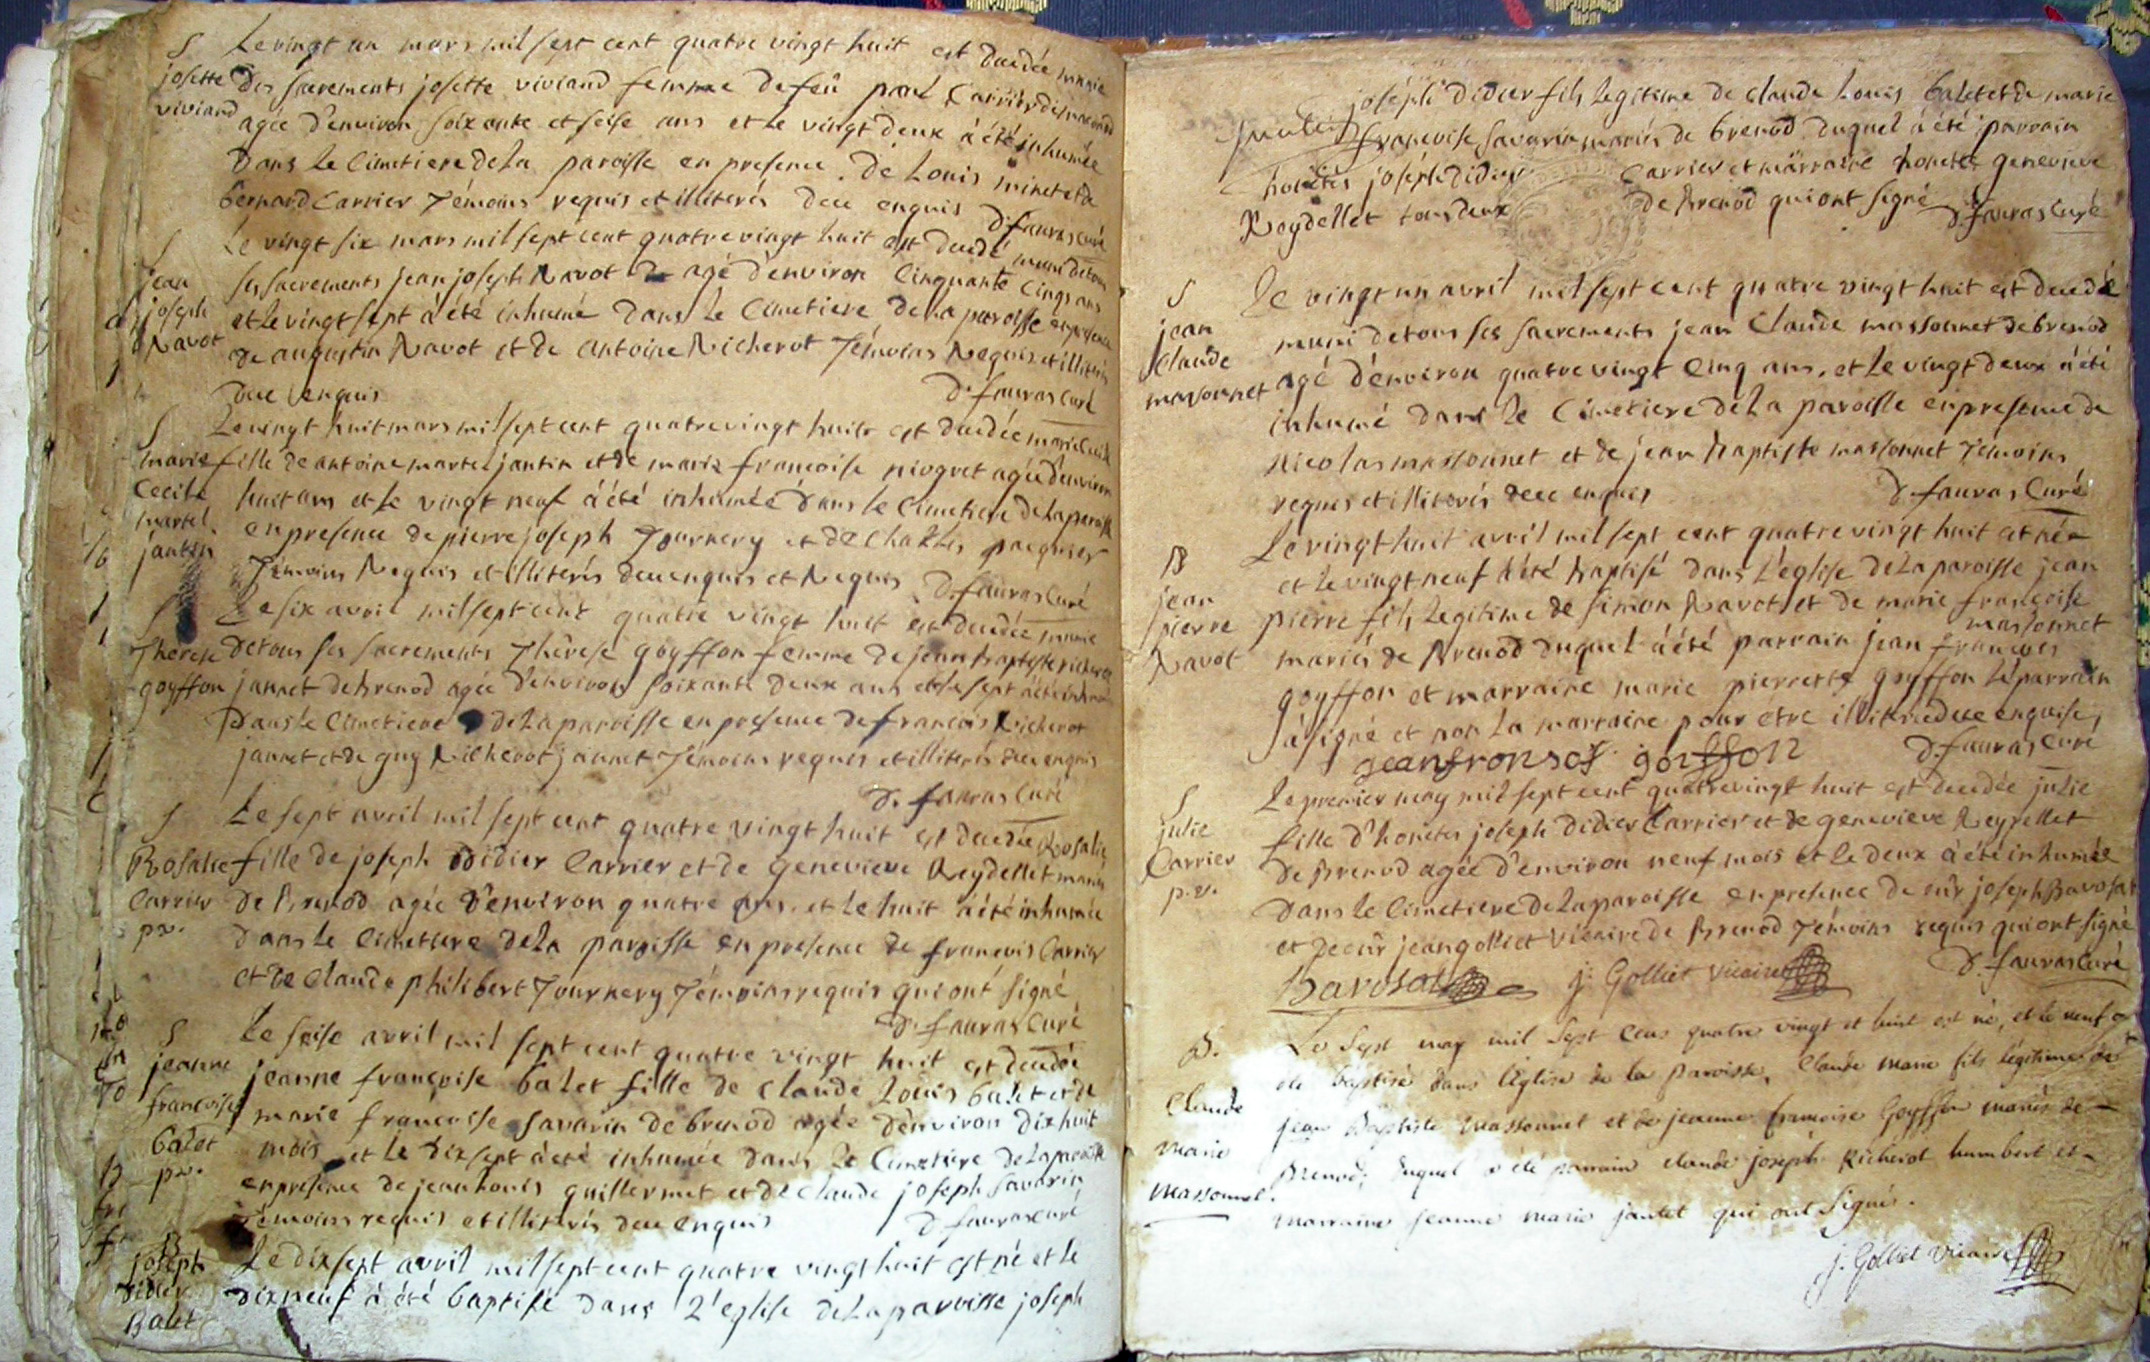 S Le vingt un mars mil sept cent quatre vingt huit est decedée munie
josette des sacrements josette viviand femme de feû paul Carrier
viviand agée d'environ soixante et seise ans et le vingt deux à été inhumée
dans le Cimetiere de La paroisse en presence de Louis minet et de
bernard Carrier Témoins requis et illiterés deue enquis D. fauras Curé
S Le vingt six mars mil sept cent quatre vingt huit est decedé muni de tous
jean ses sacrements jean joseph Ravot agé d'environ Cinquante Cinqs ans
joseph et le vingt sept à été inhumé dans le Cimetiere de la paroisse en presence
Ravot de augustin Ravot et de antoine Richerot Témoins Requis et illiterés
deue enquis D. fauras Curé
S Le vingt huit mars mil sept cent quatre vingt huit est decedée marie Cecile
marie fille de antoine martel jantin et de marie françoise niogret agée d'environ
Cecile huit ans et le vingt neuf à été inhumée dans le Cimetiere de la paroisse
martel en presence de pierre joseph Tournery et de Charles
jantin Témoins Requis et illiterés deue enquis et Requis D. fauras Curé
S Le six avril mil sept cent quatre vingt huit est decedée munie
Therese de tous ses sacrements Thérese goyffon femme de jean baptiste richerot
goyffon jannet de brenod agée d'environ soixante deux ans et le sept à été inhumée
dans le Cimetiere de La paroisse en presence de francois Richerot
jannet et de guy Richerot jannet Témoins requis et illiterés deue enquis
D. fauras Curé
S Le sept avril mil sept cent quatre vingt huit est decedée Rosalie
Rosalie fille de joseph didier Carrier et de genevieve Reydellet mariés
Carrier de Brenod agée d'environ quatre ans et le huit à été inhumée
pr. dans le Cimetiere de La paroisse en presence de françois Carrier
et de Claude philibert Tournery Témoins requis qui ont signé
D. fauras Curé
S Le seise avril mil sept cent quatre vingt huit est decedée
jeanne jeanne françoise balet fille de Claude Louis balet et de
françoise marie françoise savarin de brenod agée d'environ dix huit
balet mois et le dix sept à été inhumée dans le Cimetiere de la paroisse
pr. en presence de jean Louis guillermet et de Claude joseph savarin
Témoins requis et illiterés deue enquis D. fauras Curé
B
joseph Le dix sept avril mil sept cent quatre vingt huit est né et le
didier dix neuf à été baptisé dans L'eglise de La paroisse joseph
Balet
joseph didier fils legitime de Claude Louis balet et de marie
françoise savarin mariés de brenod duquel à été parrain
honètes joseph didier Carrier et marraine honete genevieve
Reydellet tous deux de Brenod qui ont signé D. fauras Curé
S Le vingt un avril mil sept cent quatre vingt huit est decedé
jean muni de tous ses sacrements jean Claude massonnet de brenod
Claude agé d'environ quatre vingt Cinq ans. et le vingt deux à été
massonnet inhumé dans le Cimetiere de La paroisse en presence de
Nicolas massonnet et de jean baptiste massonnet Témoins
requis et illiterés deue enquis D. fauras Curé
B Le vingt huit avril mil sept cent quatre vingt huit est né
jean et le vingt neuf à été baptisé dans L'église de La paroisse jean
pierre pierre fils legitime de simon Ravot et de marie françoise
massonnet
Ravot mariés de Brenod duquel à été parrain jean françois
goyffon et marraine marie pierrette goyffon Le parrain
à signé et non La marraine pour etre illiterée deue enquise,
jeanfronsos goiffon D. fauras Curé
S Le premier may mil sept cent quatre vingt huit est decedée julie
julie fille d'honetes joseph didier Carrier et de genevieve Reydellet
Carrier de Brenod agée d'environ neuf mois et le deux à été inhumée
pr. dans le Cimetiere de La paroisse en presence de joseph Bavosat
et jean golliet vicaire de Brenod Témoins requis qui ont signé
Bavosat j. Golliet vicaire D. fauras Curé
B. Le Sept may mil Sept Cens quatre vingt et huit est né, et le neuf a
été baptisé dans l'Eglise de la Paroisse, Claude Marie fils légitime de
Claude jean Baptiste Massonnet et de jeanne françoise Goyffon mariés de
Marie Brenod; duquel a été parrain claude joseph Richerot humbert et
Massonnet. marraine jeanne marie jantet qui ont signé.
j. Golliet vicaire